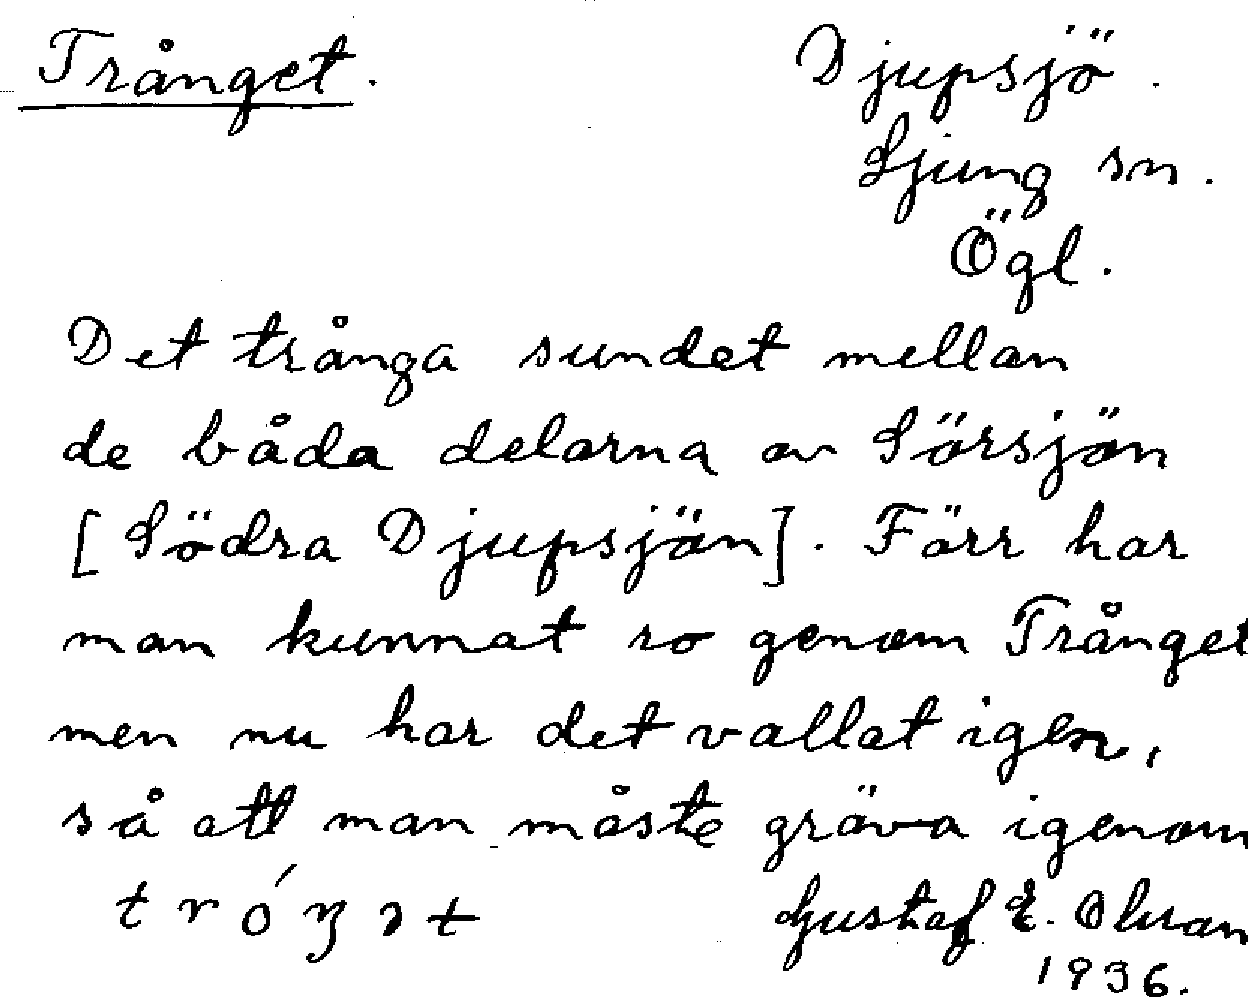 Trånget. Djupsjö.
Ljung sn.
Ögl.
Det trånga sundet mellan
de båda delarna av Sörsjön
[Södra Djupsjön]. Förr har
man kunnat ro genom Trånget
men nu har det vallat igen,
så att man måste gräva igenom
tróŋət Gustaf E. Olsson
1936.